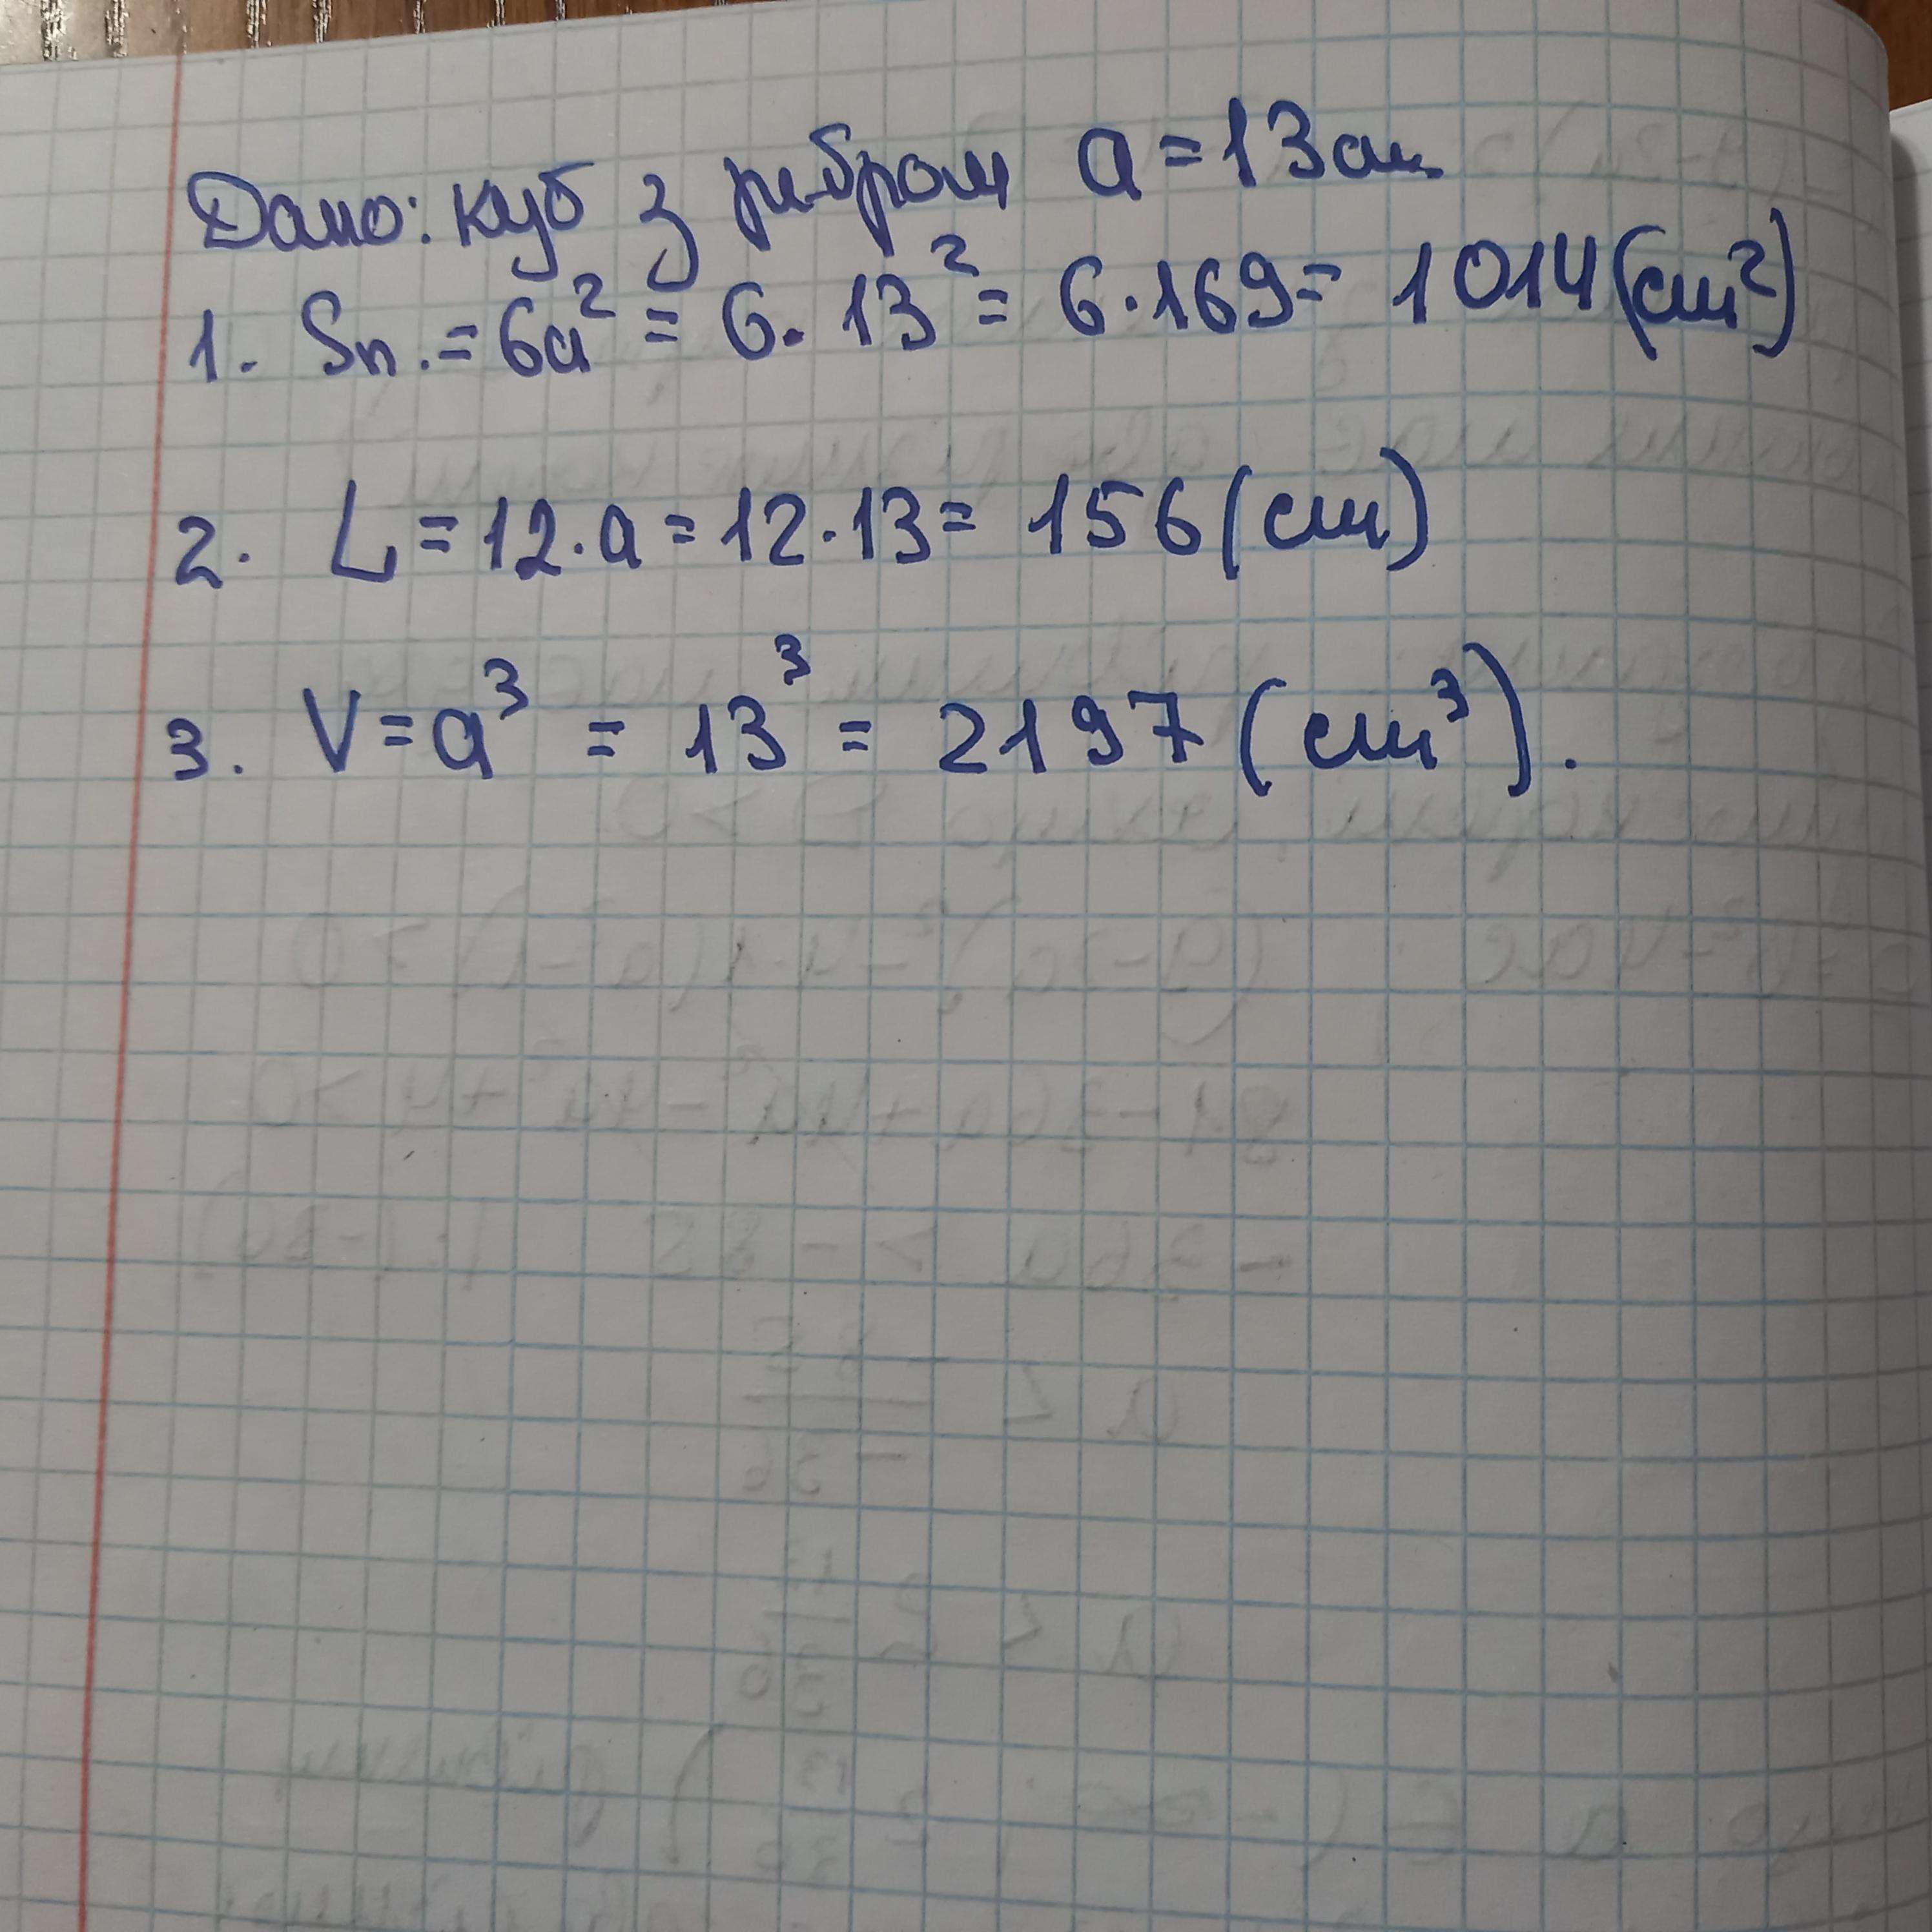 Дано: куб з ребром a = 13 см
1. Sп. = 6a² = 6 · 13² = 6 · 169 = 1014 (см²)
2. L = 12 · a = 12 · 13 = 156 (см)
3. V = a³ = 13³ = 2197 (см³).